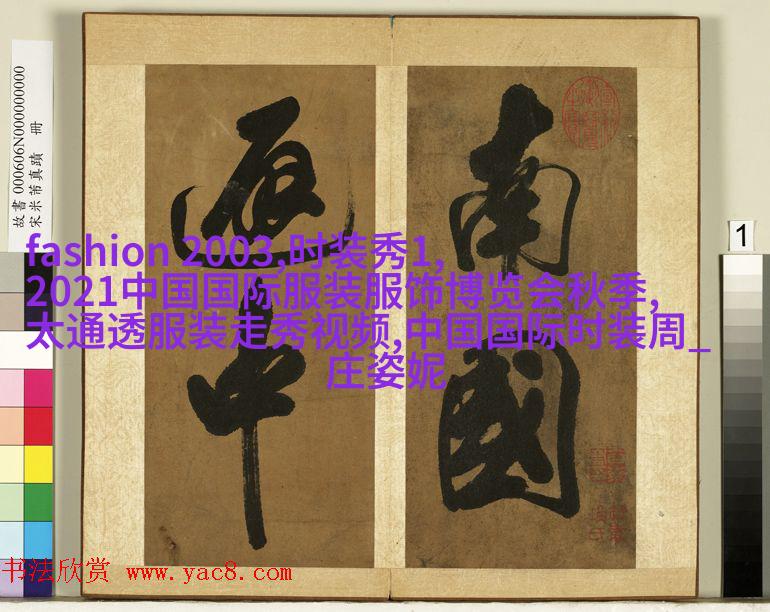 故書000606N000000000
宋米芾真蹟 冊
南國
中
1
fashion 2003,时装秀1,
2021中国国际服装服饰博览会秋季,
太通透服装走秀视频,中国国际时装周_
庄姿妮
书法欣赏 www.yac8.com